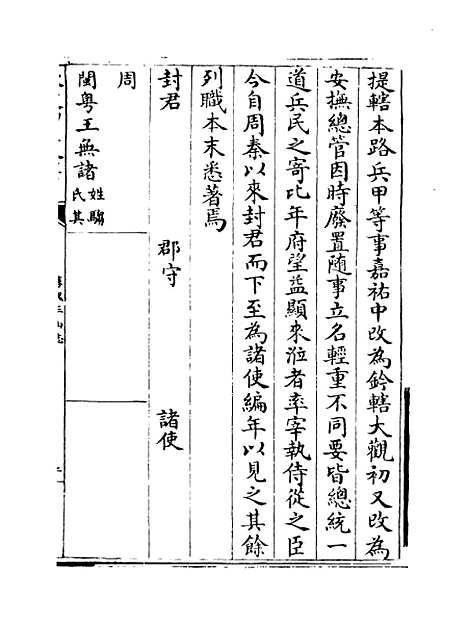 提轄本路兵甲等事嘉祐中改為鈐轄大觀初又改為
安撫總管因時廢置随事立名輕重不同要皆總統一
道兵民之寄比年府望益顯來涖者率宰執侍從之臣
今自周秦以來封君而下至為諸使編年以見之其餘
列職本末悉著焉
封君 郡守 諸使
周
閩粤王無諸姓騶氏其